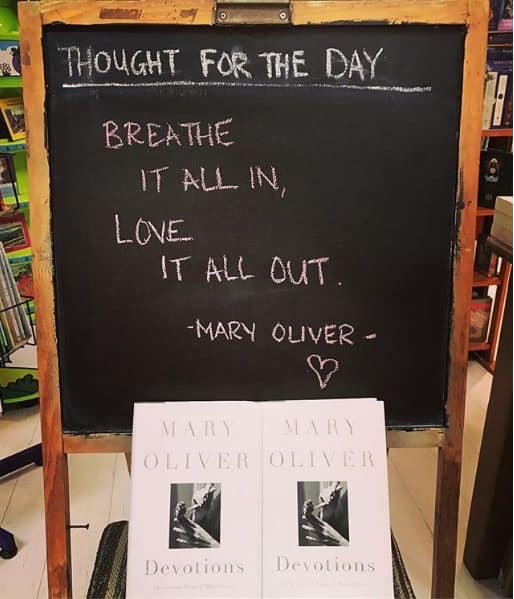 THOUGHT FOR THE DAY
BREATHE
IT ALL IN,
LOVE
IT ALL OUT.
-MARY OLIVER-
MARY
OLIVER
Devotions
MARY
OLIVER
Devotions